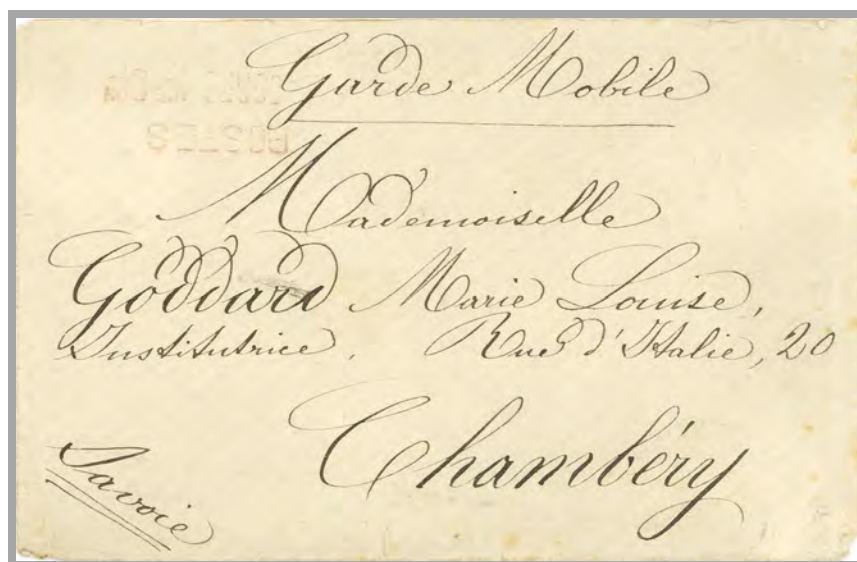 Garde Mobile
Mademoiselle
Goddard Marie Louise,
Institutrice, Rue d'Italie, 20
Chambéry
Savoie